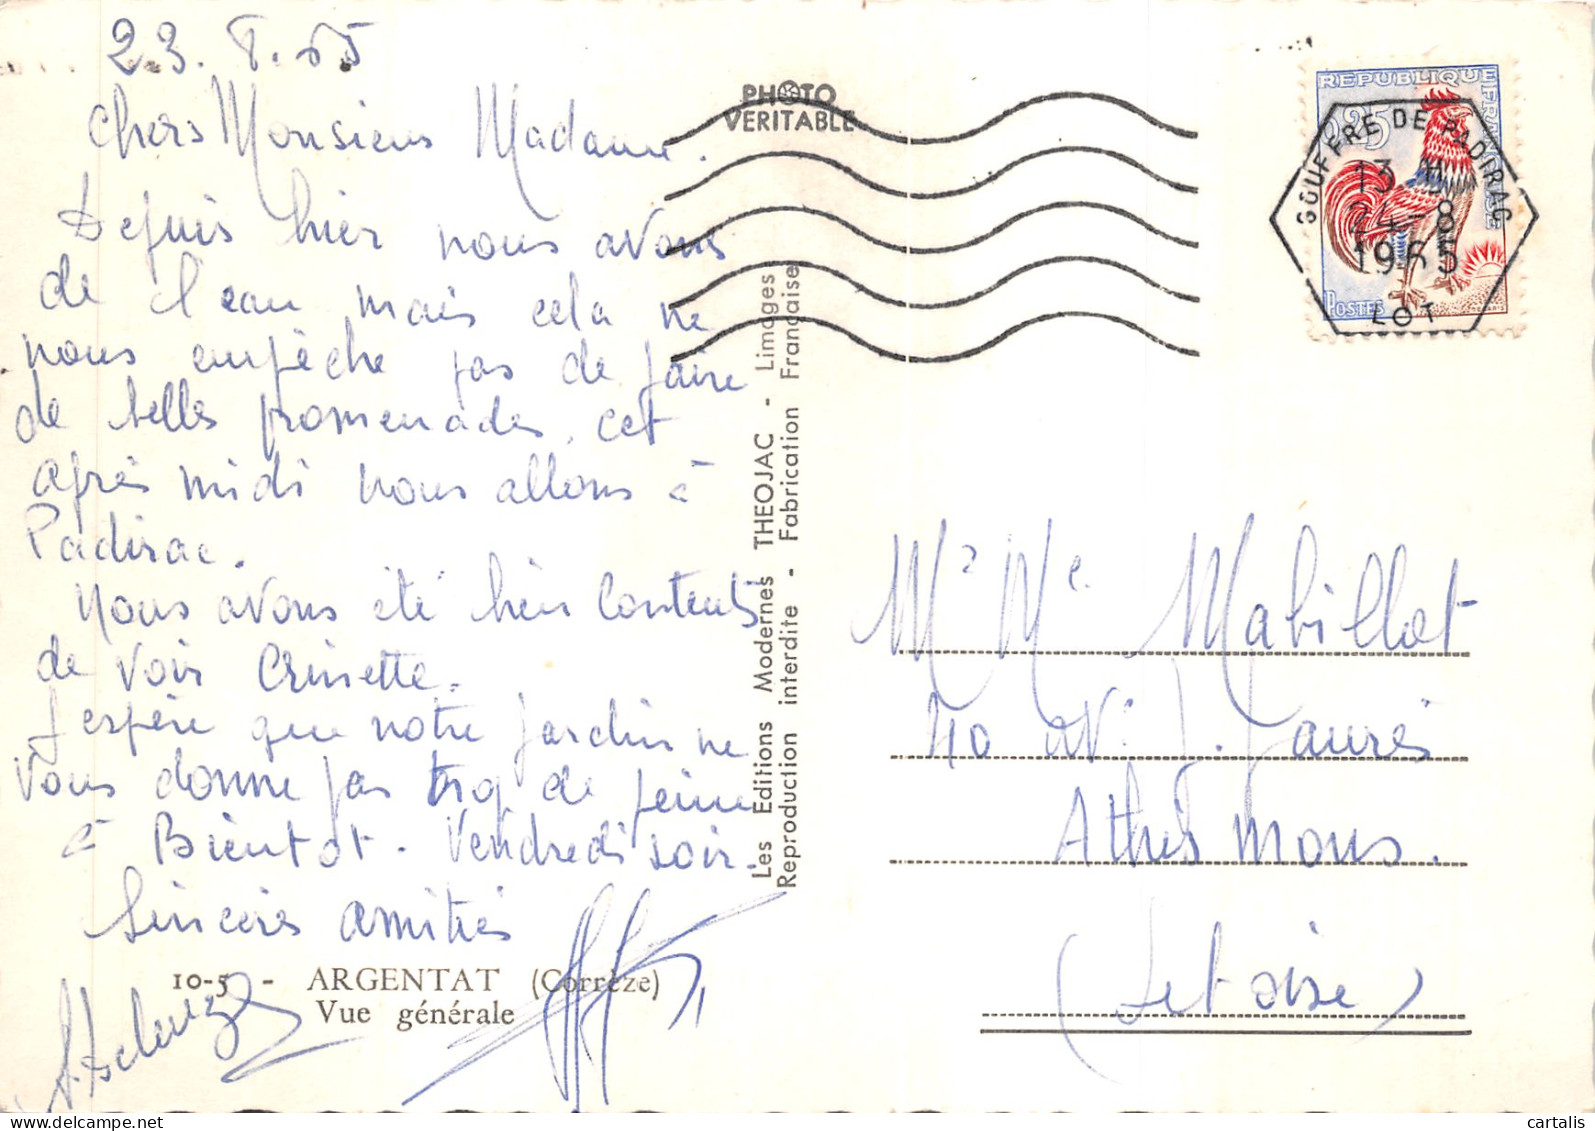 23.8.65
Chers Monsieur Madame.
Depuis hier nous avons
de l'eau mais cela ne
nous empèche pas de faire
de belles promenades, cet
après midi nous allons à
Padirac.
Nous avons été bien contents
de voir Crinette.
J'espère que notre jardin ne
vous donne pas trop de peine
à Bientot. Vendredi soir.
Sincères amitiés
10-5 - ARGENTAT (Corrèze)
Vue générale
PHOTO
VERITABLE
Les Editions Modernes THEOJAC - Limoges
Reproduction interdite - Fabrication Française
REPUBLIQUE FRANÇAISE
0,25
POSTES
GOUFFRE DE PADIRAC
13 H
24-8
1965
LOT
Mr Me Mabillot
40 av. J. Jaurès
Athis Mons.
(Set oise)
cartalis | delcampe.net